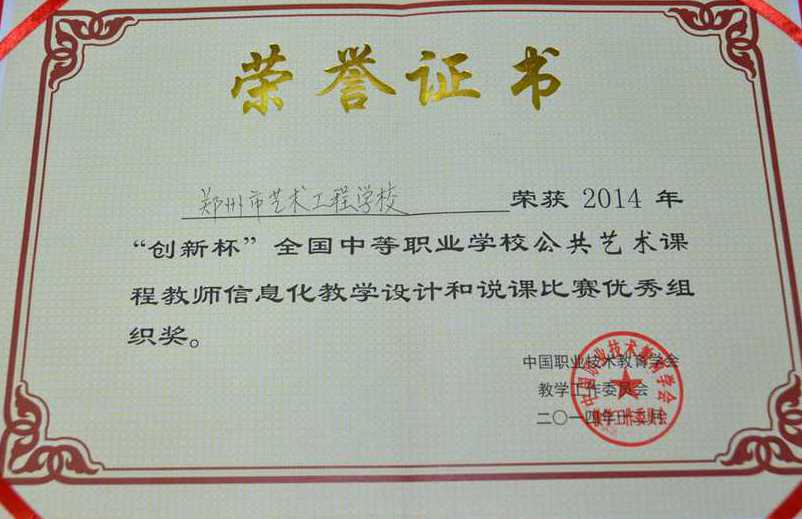 荣誉证书
郑州市艺术工程学校 荣获 2014 年
“创新杯”全国中等职业学校公共艺术课
程教师信息化教学设计和说课比赛优秀组
织奖。
中国职业技术教育学会
教学工作委员会
二〇一四年十二月
中国职业技术教育学会
教学工作委员会